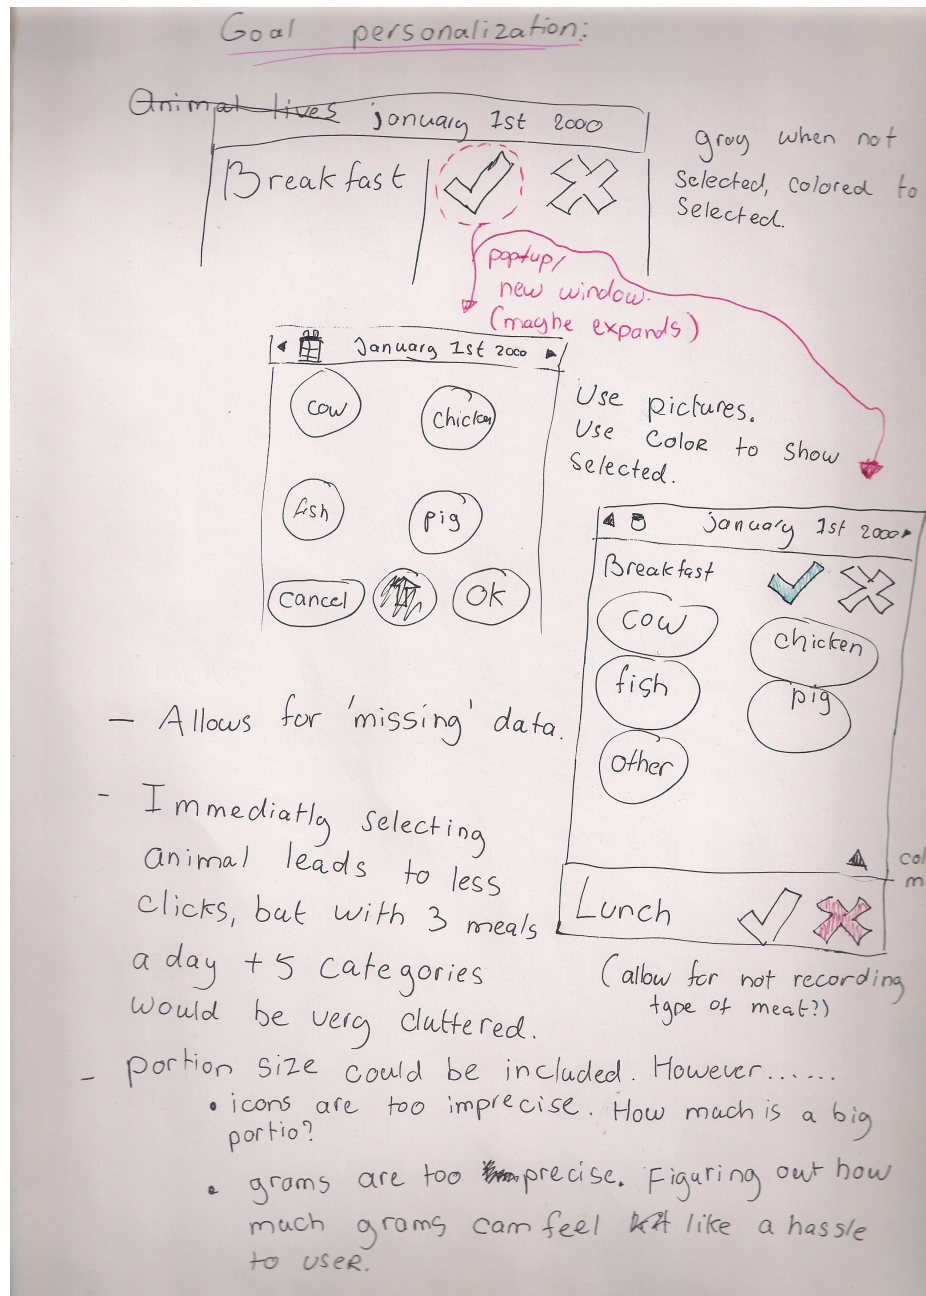 Goal personalization:
Animal lives
january 1st 2000
Breakfast
gray when not
selected, colored to
selected.
popup/
new window.
(maybe expands)
January 1st 2000
cow
chicken
fish
pig
cancel
OK
Use pictures.
Use color to show
selected.
january 1st 2000
Breakfast
cow
chicken
fish
pig
other
col
m
Lunch
(allow for not recording
type of meat?)
- Allows for 'missing' data.
- Immediatly selecting
animal leads to less
clicks, but with 3 meals
a day + 5 categories
would be very cluttered.
- portion size could be included. However......
• icons are too imprecise. How much is a big
portio?
• grams are too precise. Figuring out how
much grams cam feel like a hassle
to user.